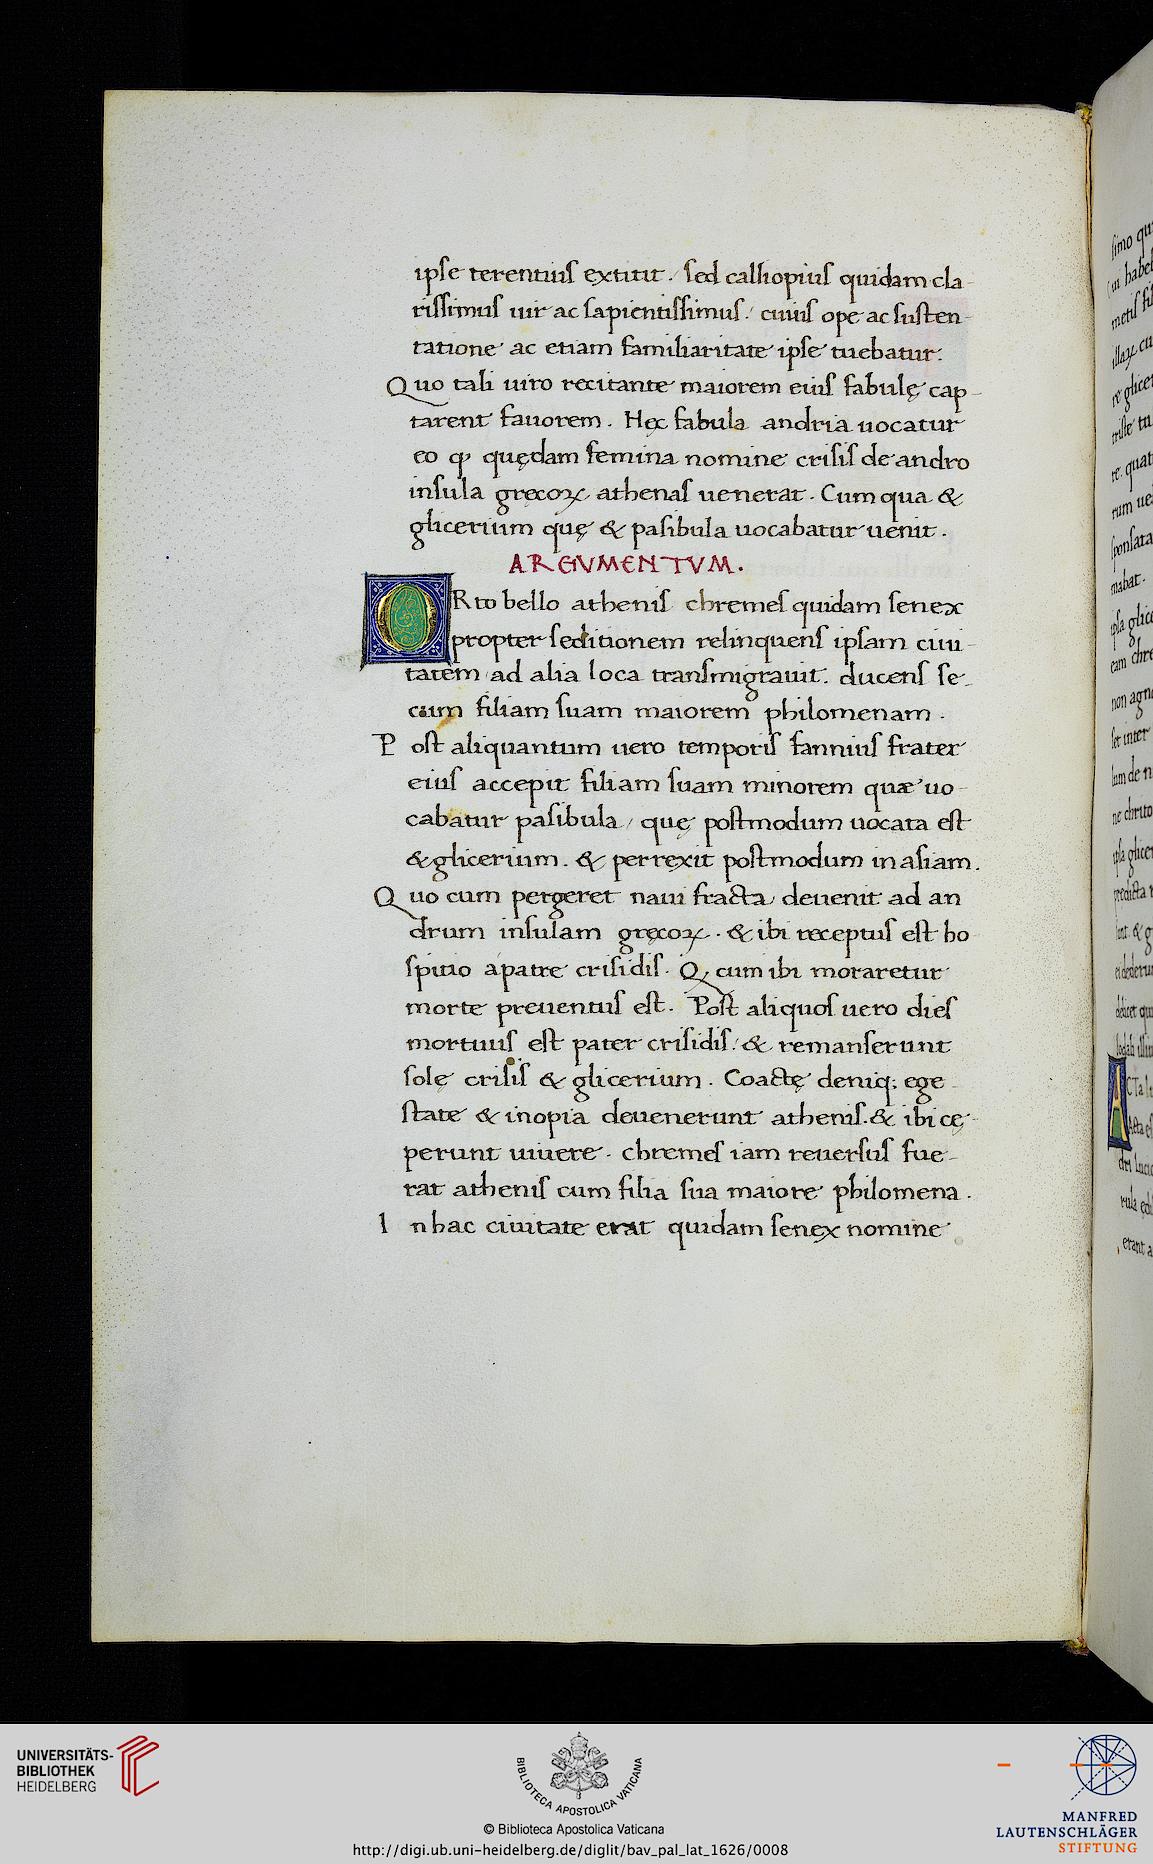 ipse terentius extitit. sed calliopius quidam cla-
rissimus uir ac sapientissimus. cuius ope ac susten-
tatione ac etiam familiaritate ipse tuebatur.
Quo tali uiro recitante maiorem eius fabulę cap-
tarent fauorem. Hęc fabula andria uocatur
eo ꝙ quędam femina nomine crisis de andro
insula gręcoꝝ athenas uenerat. Cum qua &
glicerium quę & pasibula uocabatur uenit.
ARGVMENTVM.
ORto bello athenis chremes quidam senex
propter seditionem relinquens ipsam ciui-
tatem ad alia loca transmigrauit. ducens se-
cum filiam suam maiorem philomenam.
Post aliquantum uero temporis fannius frater
eius accepit filiam suam minorem quæ uo-
cabatur pasibula, quę postmodum uocata est
& glicerium. & perrexit postmodum in asiam.
Quo cum pergeret naui fracta deuenit ad an
drum insulam gręcoꝝ. & ibi receptus est ho
spitio a patre crisidis. Q, cum ibi moraretur
morte preuentus est. Post aliquos uero dies
mortuus est pater crisidis. & remanserunt
solę crisis & glicerium. Coactę deniq; ege-
state & inopia deuenerunt athenis. & ibi cę-
perunt uiuere. chremes iam reuersus fue-
rat athenis cum filia sua maiore philomena.
In hac ciuitate erat quidam senex nomine
UNIVERSITÄTS-
BIBLIOTHEK
HEIDELBERG
BIBLIOTECA APOSTOLICA VATICANA
© Biblioteca Apostolica Vaticana
http://digi.ub.uni-heidelberg.de/diglit/bav_pal_lat_1626/0008
MANFRED
LAUTENSCHLÄGER
STIFTUNG